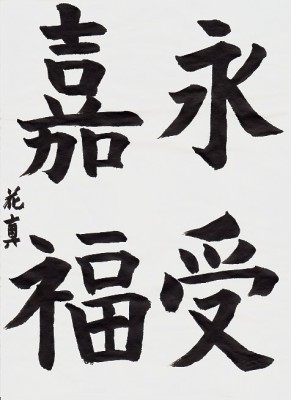 永受
嘉福
花真